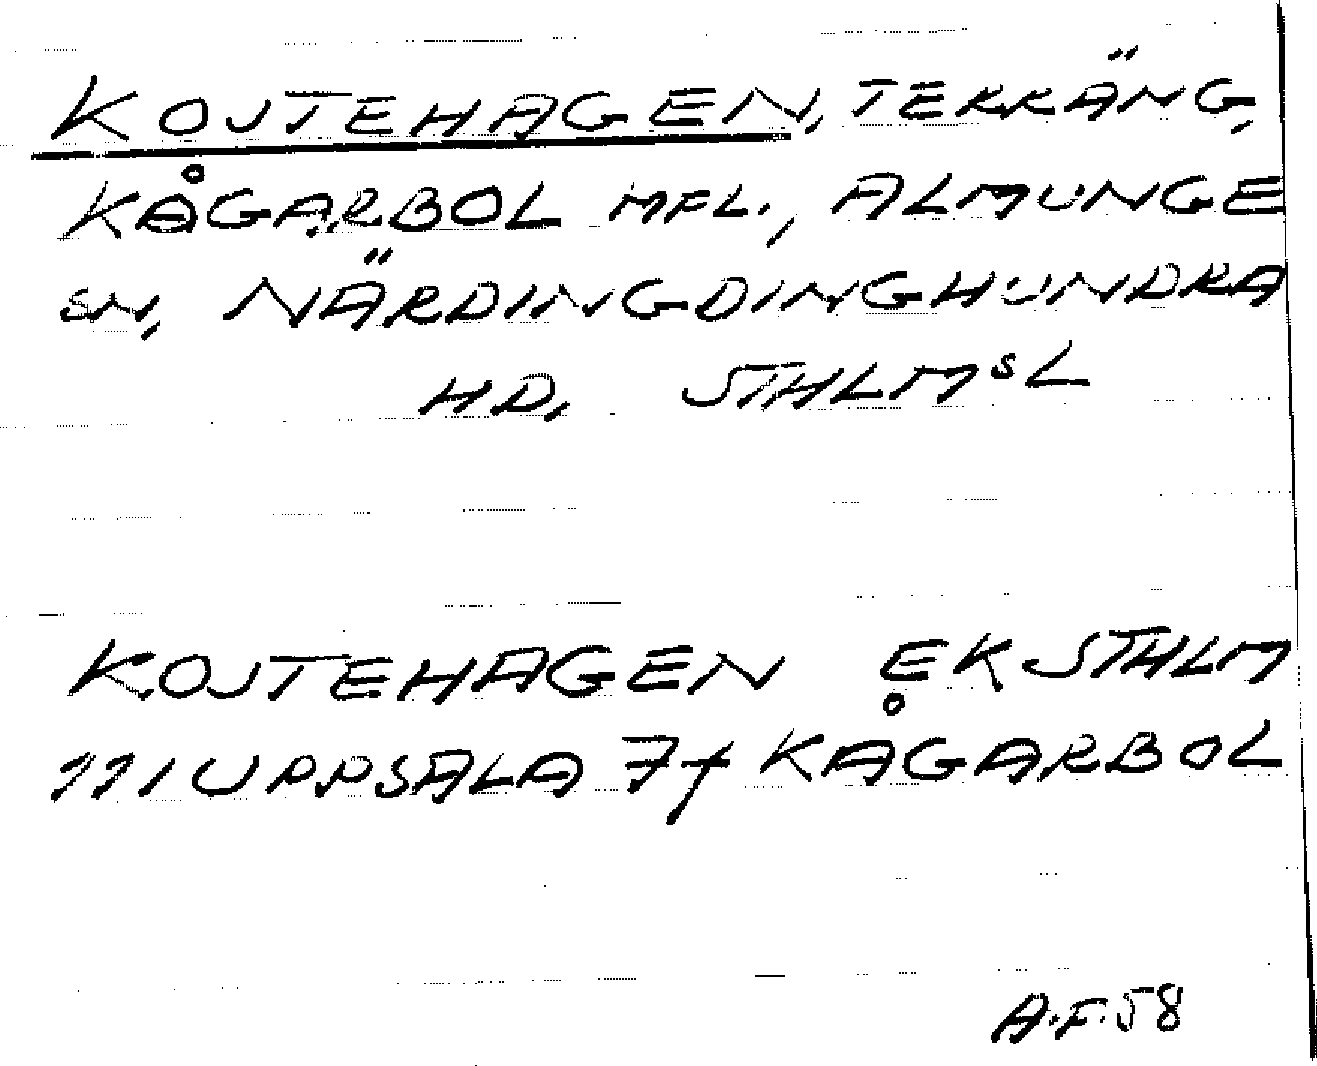 KOJTEHAGEN, TERRÄNG,
KÅGARBOL MFL., ALMUNGE
SN, NÄRDINGDINGHUNDRA
HD, STHLMSL
KOJTEHAGEN EK STHLM
111 UPPSALA 7f KÅGARBOL
A.F.58